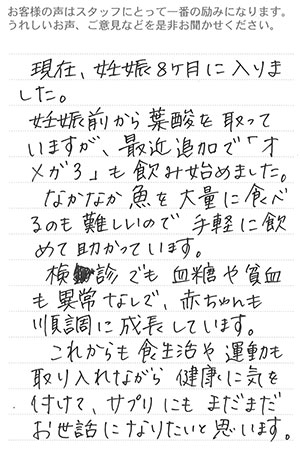 お客様の声はスタッフにとって一番の励みになります。
うれしいお声、ご意見などを是非お聞かせください。
現在、妊娠8ケ月に入りま
した。
妊娠前から葉酸を取って
いますが、最近追加で「オ
メガ3」も飲み始めました。
なかなか魚を大量に食べ
るのも難しいので手軽に飲
めて助かっています。
検診でも血糖や貧血
も異常なしで、赤ちゃんも
順調に成長しています。
これからも食生活や運動も
取り入れながら健康に気を
付けて、サプリにもまだまだ
お世話になりたいと思います。